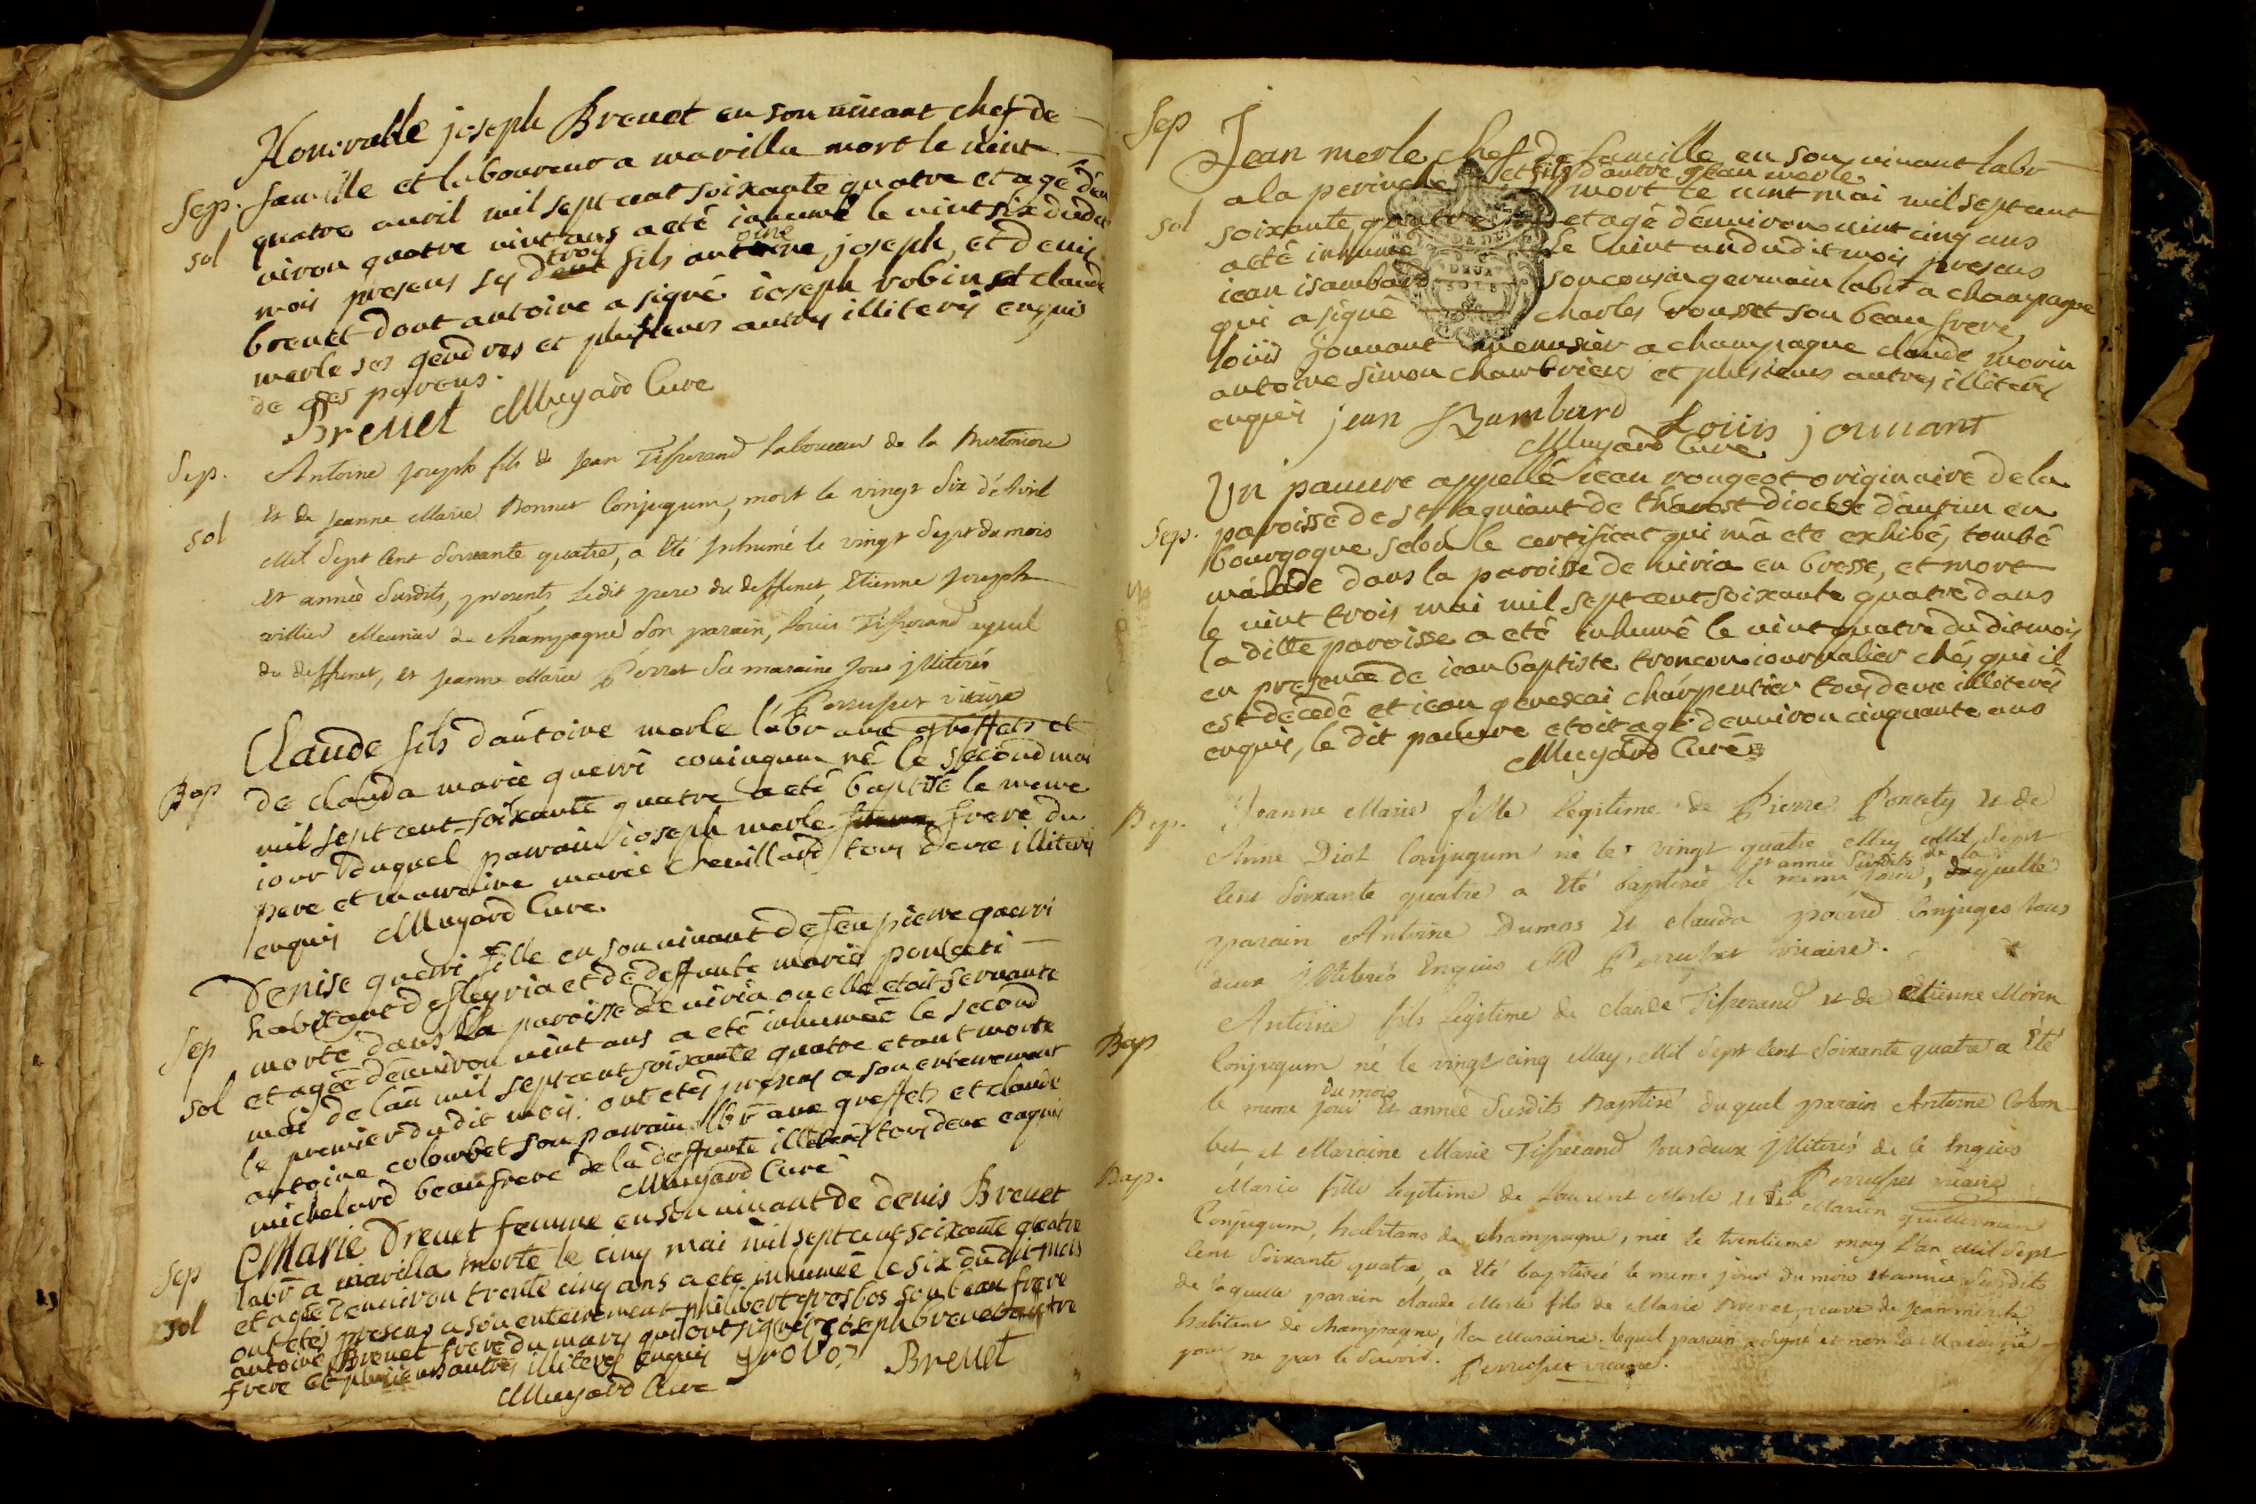 Honorable joseph Brevet en son vivant chef de
Sep. famille et laboureur a marilla mort le vint
sol quatre avril mil sept cent soixante quatre et agé d'en
viron quatre vint ans a eté inhumé le vint six dudit
mois presens ses trois fils antoine, joseph, et denis
brevet dont antoine a signé ioseph robin et claude
merle ses gendres et plusieurs autres illiteres enquis
de ses parens.
Brevet Muyard Curé
Sep. Antoine joseph fils de jean Tisserand Laboureur de la
sol Et de jeanne Marie Bonnet Conjugum, mort le vingt Six d'Avril
Mil Sept Cent Soixante quatre, a Eté Inhumé le vingt Sept du mois
Et année Susdits, presents Ledit pere du deffunct, Etienne joseph
Meunier de champagne Son parain, Louis Tisserand ayeul
du deffunct, Et jeanne Marie Perret Sa maraine tous illiterés
Perruset vicaire
Claude fils d'antoine merle labr aux greffets et
Bap de clauda marie guerri coniugum né le second mai
mil sept cent soixante quatre a eté baptisé le meme
iour duquel parrain ioseph merle frere du
pere et marraine marie chevillard tous deux illiteres
enquis Muyard Curé
Denise guerri fille en son vivant de feu pierre guerri
habitant de fleyria et de deffunte marie ponceti
Sep morte dans la paroisse de viria ou elle etoit servante
sol et agée d'environ vint ans a eté inhumée le second
mai de l'an mil sept cent soixante quatre etant morte
le premier du dit mois. ont etés presens a son enterrement
antoine colombet son parrain labr aux greffets et claude
michelard beaufrere de la deffunte illiteres tous deux enquis
Muyard Curé
Marie Drevet femme en son vivant de denis Brevet
Sep labr a marilla morte le cinq mai mil sept cent soixante quatre
sol et agée d'environ trente cinq ans a eté inhumée le six du dit mois
ont etés presens a son enterrement philibert grosbos son beau frere
antoine Brevet frere du mary qui ont signé joseph brevet autre
frere et plusieurs autres illiteres enquis Brevet
Muyard Curé
Sep Jean merle chef de famille en son vivant labr
a la et fils d'autre jean merle mort le vint mai mil sept cent
sol soixante quatre et agé d'environ vint cinq ans
a eté inhumé le vint un du dit mois presens
iean isambard son cousin germain labr a champagne
qui a signé charles rousset son beau frere
loüis jouvant menusier a champagne claude morin
antoine simon chambrier et plusieurs autres illiteres
enquis jean Isambard Loüis jouvant
Muyard Curé
Un pauvre appellé iean rougeot originaire de la
Sep. paroisse de st diocese d'autun en
bourgogne selon le certificat qui m'a eté exhibé, tombé
malade dans la paroisse de viria en bresse, et mort
le vint trois mai mil sept cent soixante quatre dans
la ditte paroisse a eté inhumé le vint quatre du dit mois
en presence de iean baptiste troncon iournalier chés qui il
est décedé et iean charpentier tous deux illiterés
enquis, le dit pauvre etoit agé d'environ cinquante ans
Muyard Curé
Bap. Jeanne Marie fille Legitime de Pierre Poncety Et de
Anne Diot Conjugum né le vingt quatre May Mil Sept
Cent Soixante quatre a Eté baptisée le meme jour, Et année Susdits de laquelle
parain Antoine Dumas Et clauda Conjuges tous
deux Illiterés Enquis Perruset vicaire.
Bap Antoine fils Legitime de claude Tisserand Et de Etienne Morin
Conjugum né le vingt cinq May, Mil Sept Cent Soixante quatre a Eté
le meme jour du mois Et année Susdits Baptisé duquel parain Antoine Colom-
bet et Maraine Marie Tisserand tous deux Illiterés de ce Enquis
Perruset vicaire
Bap. Marie fille Legitime de Laurent Merle Et de Marian guillermin
Conjugum, habitans de champagne, née le trentieme may L'an Mil Sept
Cent Soixante quatre, a Eté baptisée le meme jour du mois Et année Susdits
de laquelle parain claude Merle fils de Marie veuve de jean merle
habitant de champagne, la Maraine. lequel parain a signé et non la Maraine
pour ne pas le Savoir. Perruset vicaire.